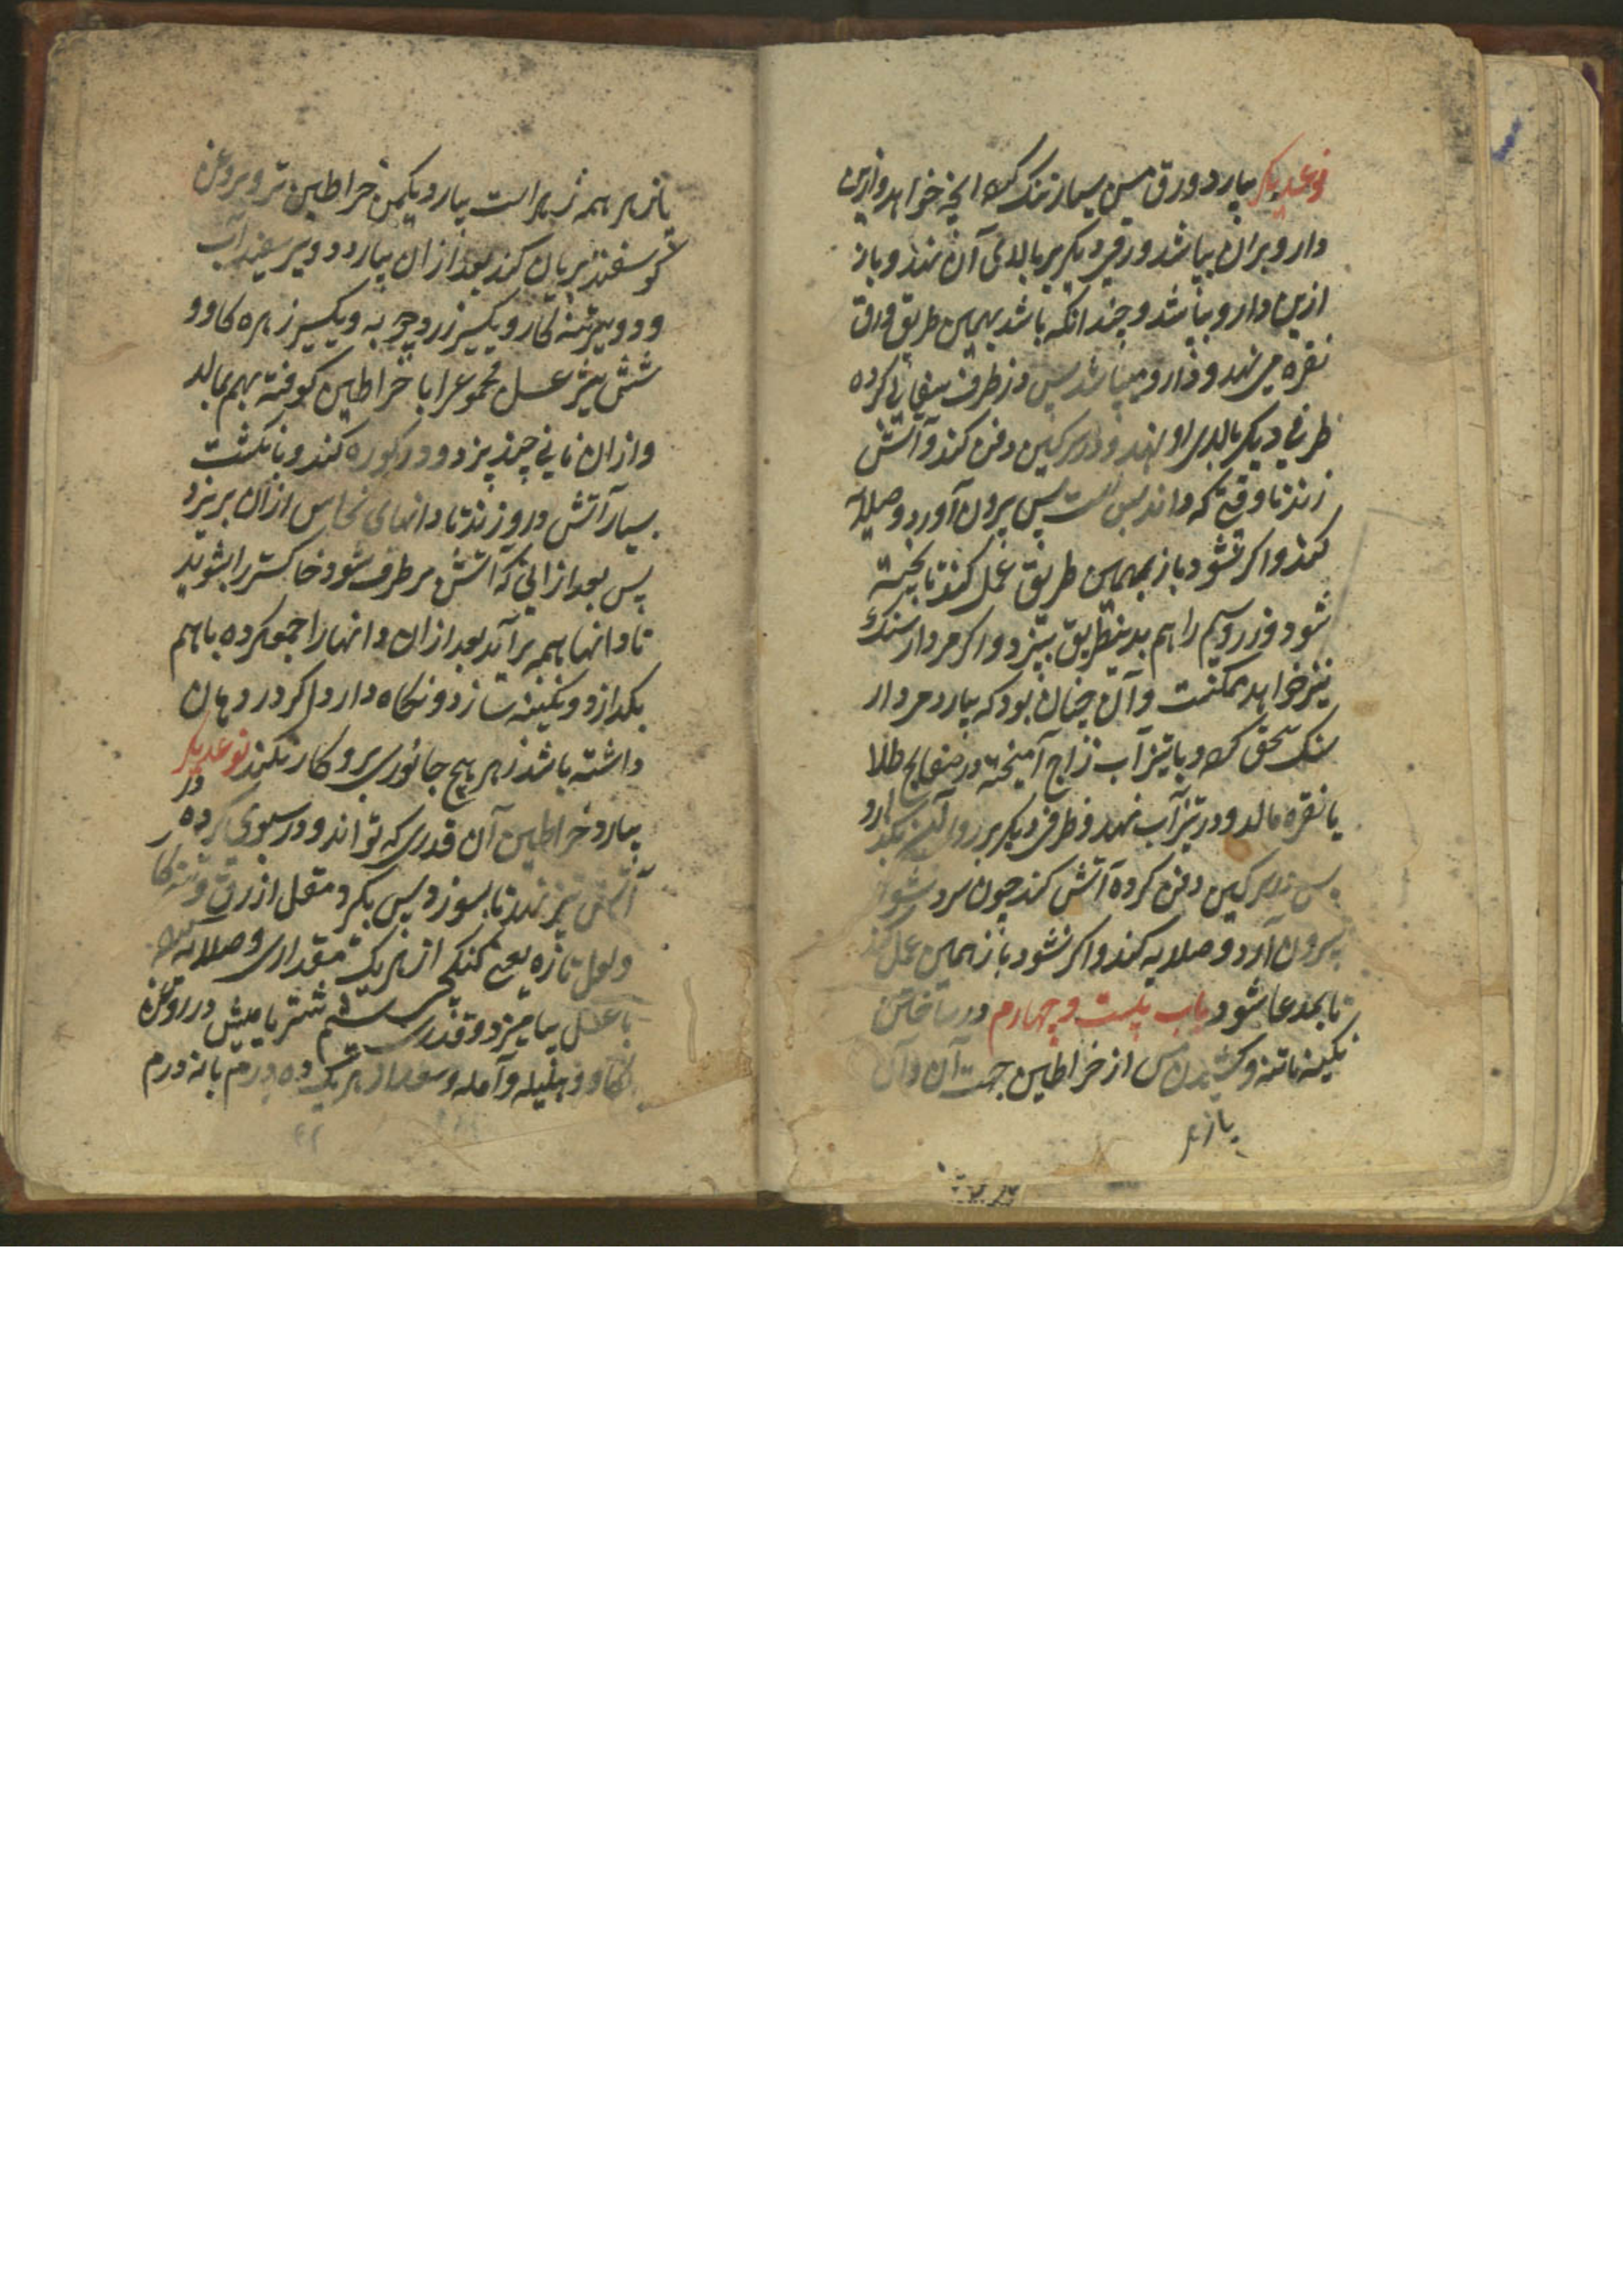 نوعدیکر بیارد ورق مس بسیار تنک کرده انچه خواهد و ازین
دارو بران بپاشد و ورقی دیکر بر بالای آن نهد و باز
ازین دارو بپاشد و چندانکه باشد بهمین طریق وراق
نقره می نهد و دارو میپاشد پس در ظرف سفالی کرده
ظرفی دیکر بالای او نهد و در سرکین دفن کند و آتش
زند تا وقتی که داند بس است پس بیرون آورد و صلایه
کند و اکر نشود باز بهمین طریق عمل کند تا پخته
شود و زر و سیم را هم بدینطریق بپزد و اکر مردار سنک
نیز خواهد ممکنست و آن چنان بود که بیارد مردار
سنک سحق کرده و با تیزآب زاج آمیخته در صفایح طلا
یا نقره مالد و در تیزآب نهد و ظرفی دیکر بر روی آن بکذارد
پس در سرکین دفن کرده آتش کند چون سرد شود
بیرون آرد و صلایه کند و اکر نشود باز همین عمل کند
تا بمدعا شود باب بیست و چهارم در ساختن
نکینه نانته و کشیدن مس از خراطین جهت آن و آن
پازهر
پازهر همه زهراست بیارد یکمن خراطین تر و بروغن
کوسفند بریان کند بعد از ان بیارد دو سیر سفیدآب
و دو سیر تنه کار و یکسیر زردچوبه و یکسیر زهره کاو و
شش سیر عسل مجموعرا با خراطین کوفته بهم بمالد
و ازان نانی چند پزد و در کوره کند و بانکشت
بسیار آتش درو زند تا دانهای نحاس ازان بریزد
پس بعد ازانی که آتش برطرف شود خاکستر را بشوید
تا دانها همه برآید بعد ازان دانها را جمع کرده باهم
بکدازد و نکینه سازد و نکاه دارد اکر در دهان
داشته باشد زهر هیچ جانوری برو کار نکند نوعدیکر
بیارد خراطین آن قدری که تواند و در سبوی کرده در
آتش تیز نهد تا بسوزد پس بکیرد مقل ازرق و تنه کار
و لعل تازه یعنی کنکی از هر یک مقداری و صلایه کرده
با عسل بیامیزد و قدری پشم شتر یا میش در روغن
کاو و هلیله و آمله و از هر یک ده درم یا نه درم